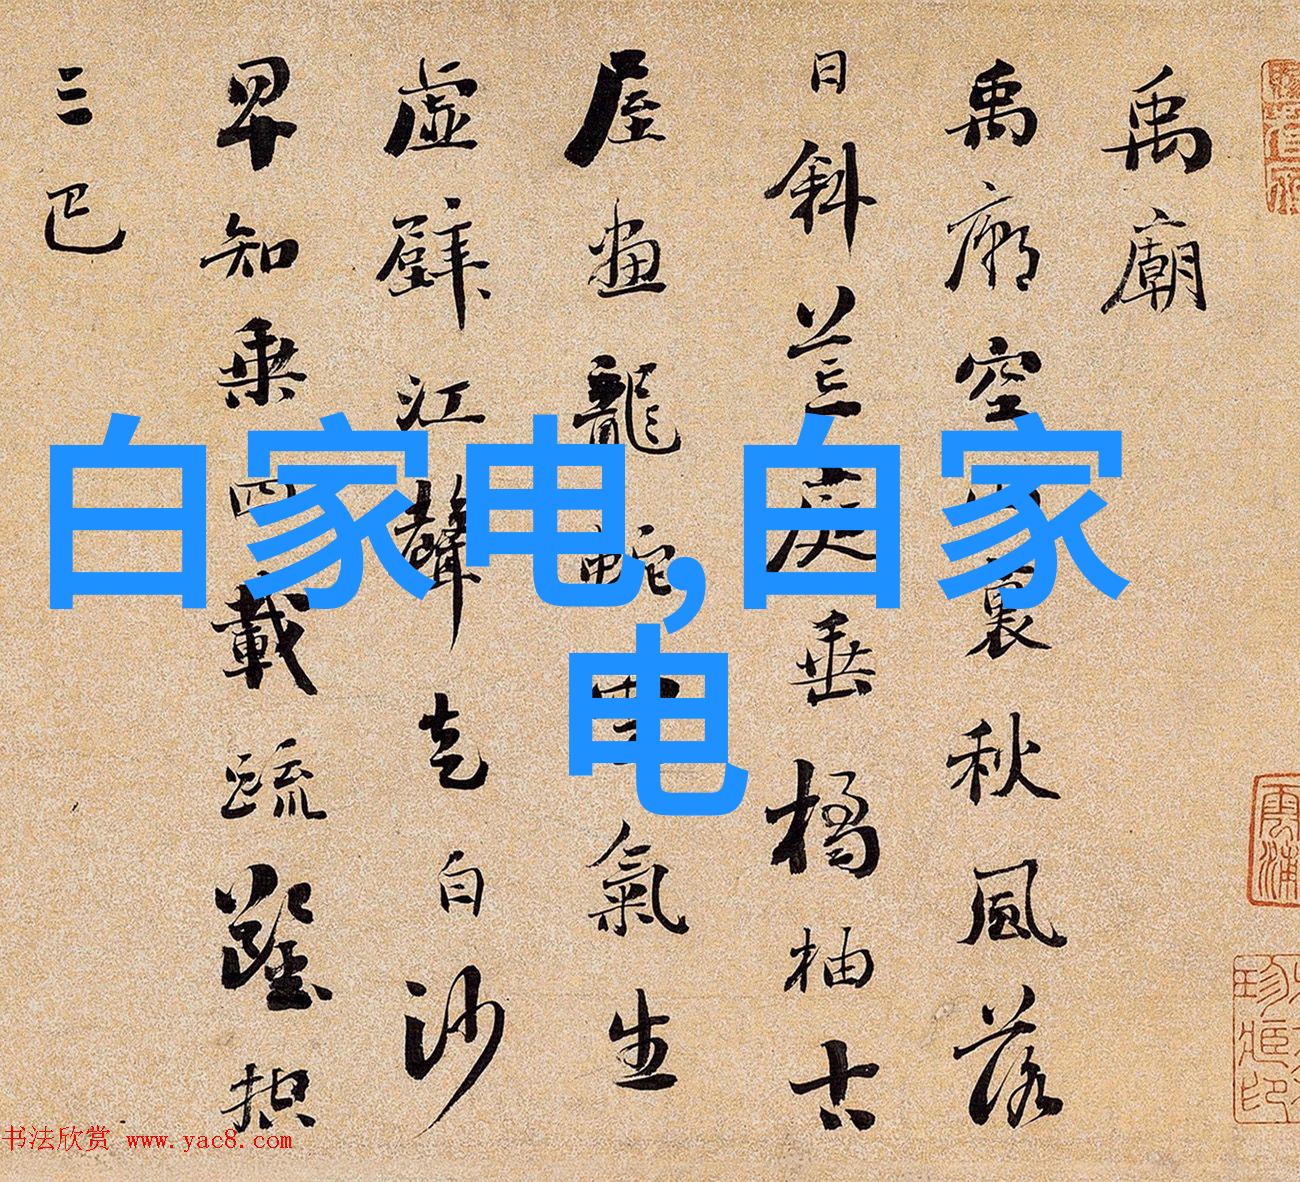 禹廟
禹廟空山裏秋風落
日斜荒庭垂橘柚古
屋畫龍蛇雲氣生
虚壁江聲走白沙
早知乘四載疏鑿控
三巴
白家电,白家
电
书法欣赏 www.yac8.com